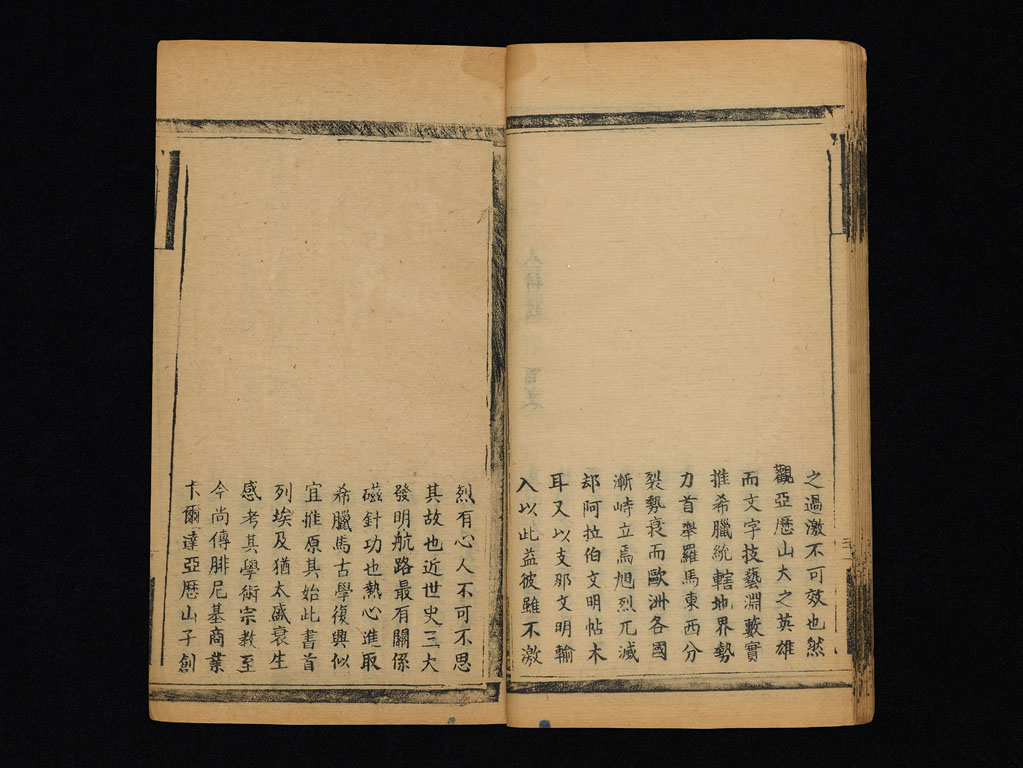 之過激不可效也然
觀亞歷山大之英雄
而文字技藝淵藪實
推希臘統轄地界勢
力首舉羅馬東西分
裂勢衰而歐洲各國
漸峙立焉旭烈兀滅
却阿拉伯文明帖木
耳又以支那文明輸
入以此益彼雖不激
烈有心人不可不思
其故也近世史三大
發明航路最有關係
磁針功也熱心進取
希臘馬古學復興似
宜推原其始此書首
列埃及猶太盛衰生
感考其學術宗教至
今尚傳腓尼基商業
卞爾達亞歷山子創